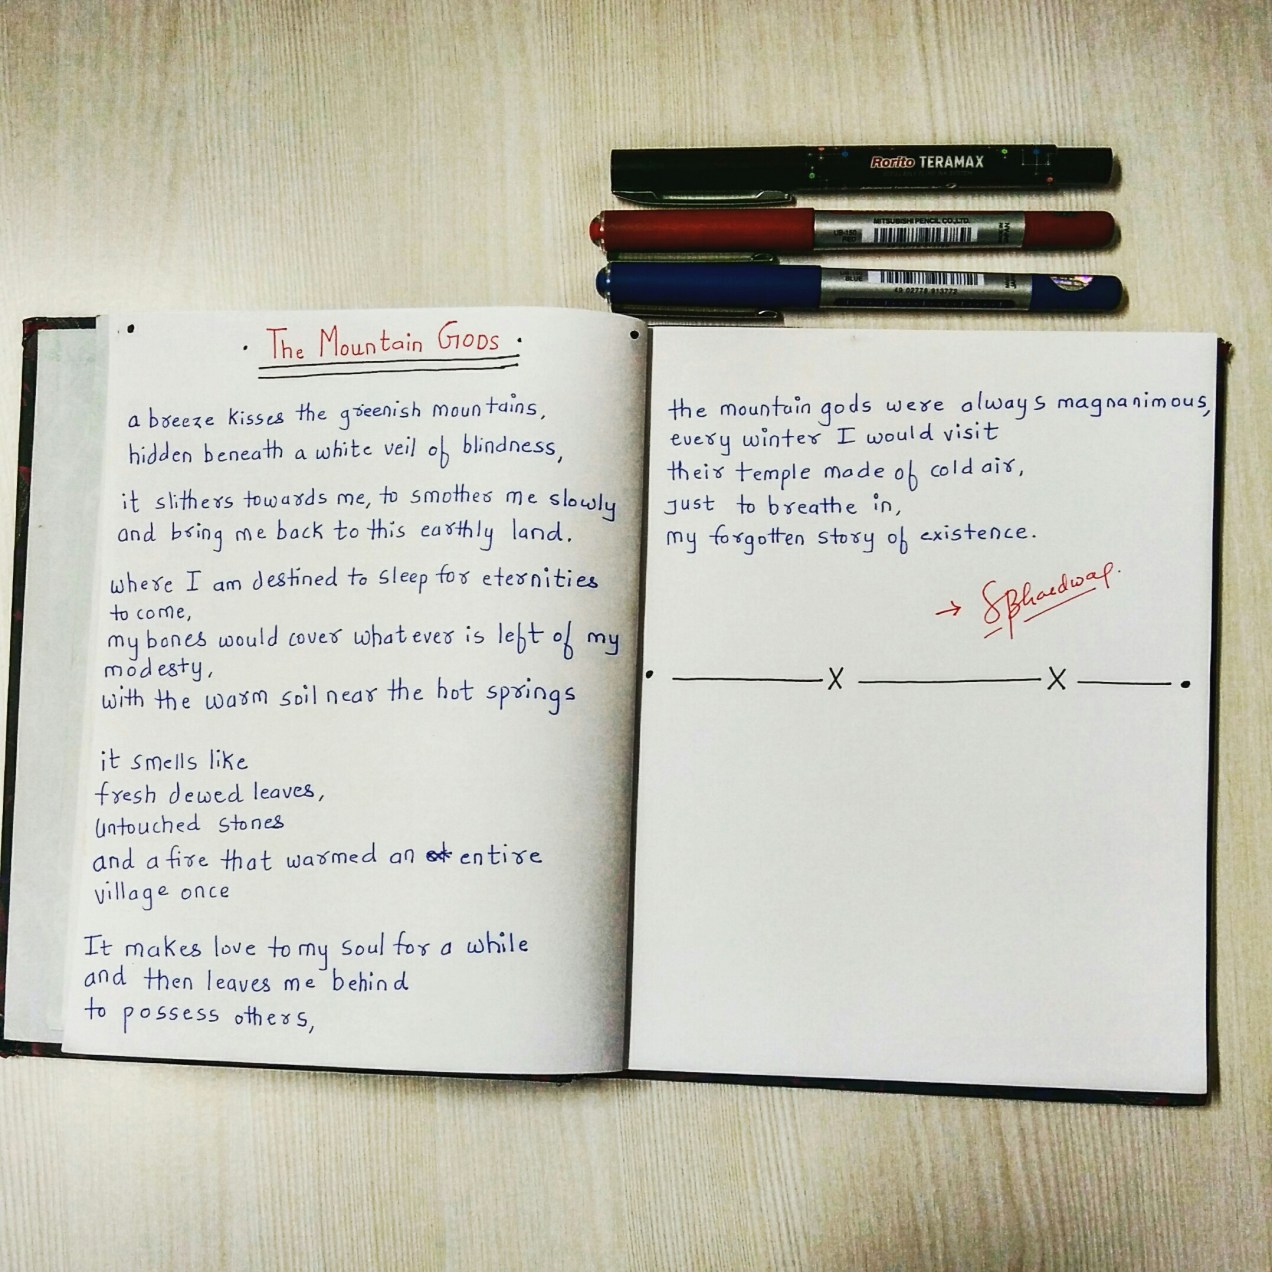 Rorito TERAMAX
MITSUBISHI PENCIL CO.,LTD.
UB-150
RED
BLUE
49 02778 913772
The Mountain GODS
a breeze kisses the greenish mountains,
hidden beneath a white veil of blindness,
it slithers towards me, to smother me slowly
and bring me back to this earthly land.
where I am destined to sleep for eternities
to come,
my bones would cover whatever is left of my
modesty,
with the warm soil near the hot springs
it smells like
fresh dewed leaves,
untouched stones
and a fire that warmed an entire
village once
It makes love to my soul for a while
and then leaves me behind
to possess others,
the mountain gods were always magnanimous,
every winter I would visit
their temple made of cold air,
just to breathe in,
my forgotten story of existence.
→ SBhardwaj.
X X